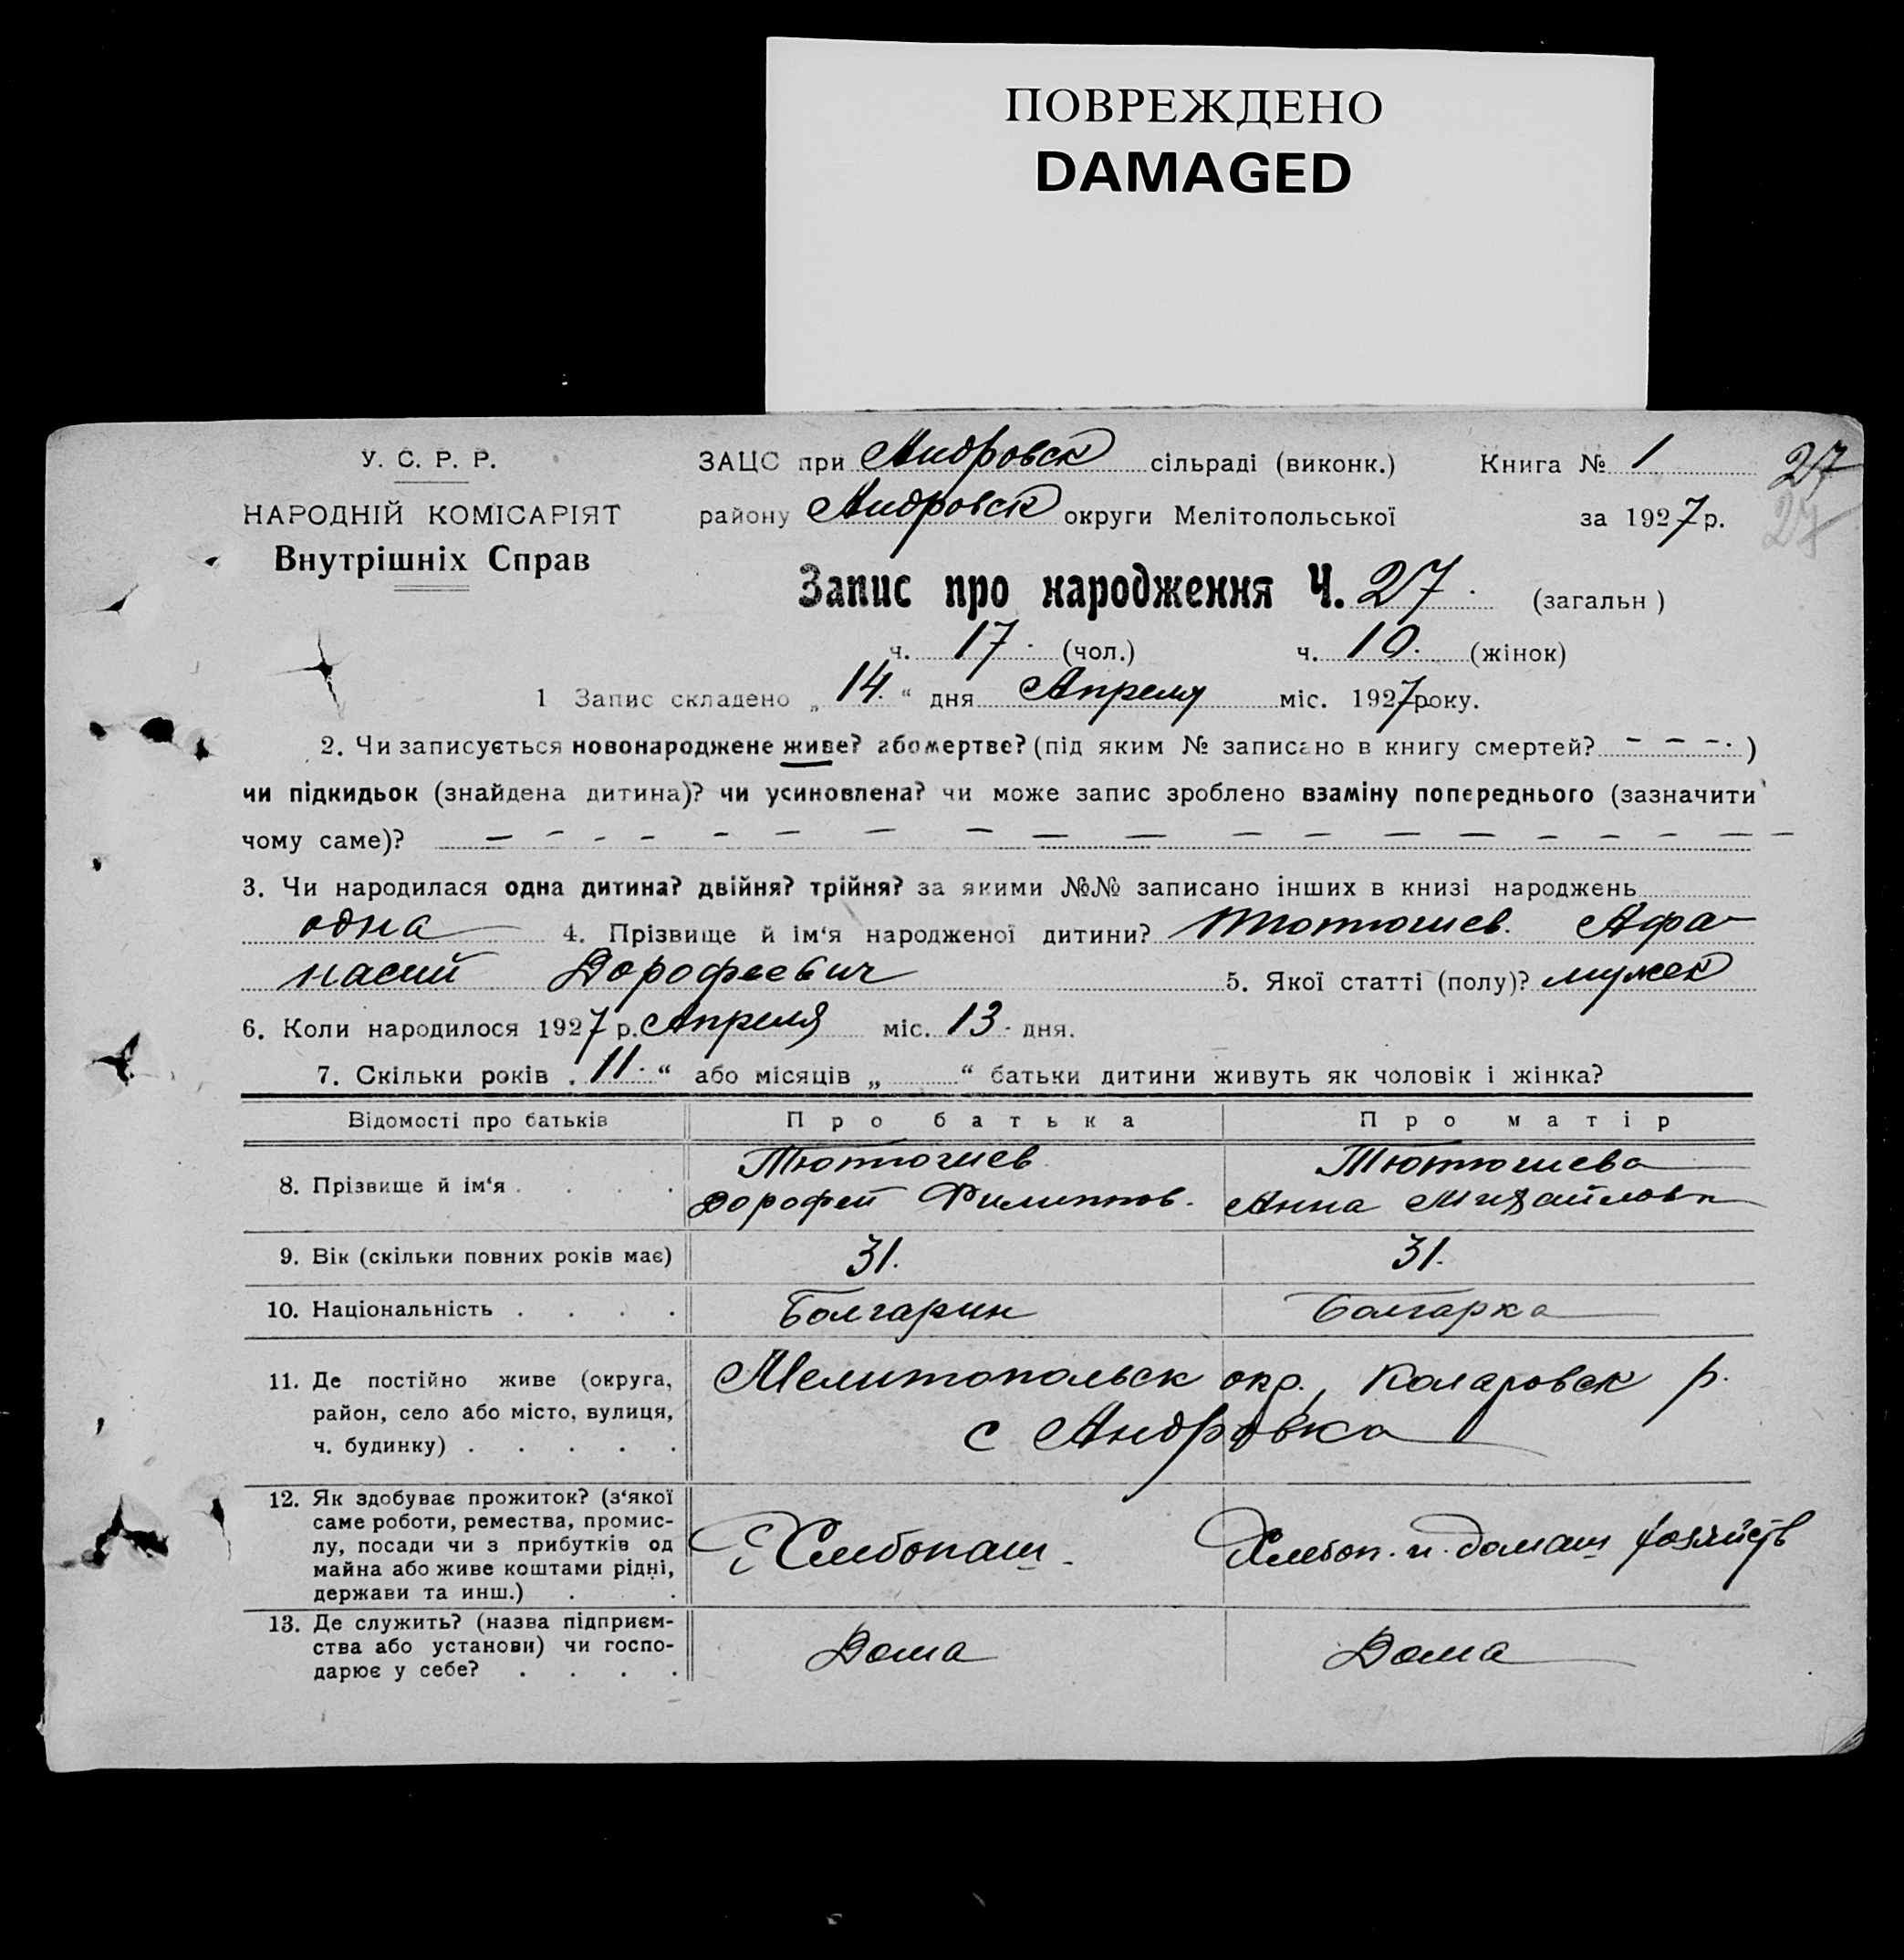 ПОВРЕЖДЕНО
DAMAGED
У. С. Р. Р.
НАРОДНІЙ КОМІСАРІЯТ
Внутрішніх Справ
ЗАЦС при Андровск сільраді (виконк.) Книга № 1 27
району Андровск округи Мелітопольської за 1927 р. 27
Запис про народження Ч. 27. (загальн)
ч. 17. (чол.) ч. 10. (жінок)
1 Запис складено „14.“ дня Апреля міс. 1927 року.
2. Чи записується новонароджене живе? або мертве? (під яким № записано в книгу смертей? – – –.)
чи підкидьок (знайдена дитина)? чи усиновлена? чи може запис зроблено взаміну попереднього (зазначити
чому саме)? — – - - - – — – — — – – — — – – – — –
3. Чи народилася одна дитина? двійня? трійня? за якими №№ записано інших в книзі народжень
одна 4. Прізвище й ім‘я народженої дитини? Тютюгиев. Афа-
насий Дорофеевич 5. Якої статті (полу)? мужск
6. Коли народилося 1927 р. Апреля міс. 13. дня.
7. Скільки років „11.“ або місяців „ “ батьки дитини живуть як чоловік і жінка?
Відомості про батьків Про батька Про матір
8. Прізвище й ім‘я . . . . Тютюгиев Тютюгиева
Дорофей Филиппов. Анна Михайловн
9. Вік (скільки повних років має) 31. 31.
10. Національність . . . . Болгарин Болгарка
11. Де постійно живе (округа,
район, село або місто, вулиця,
ч. будинку) . . . . .
Мелитопольск окр., Коларовск р.
с Андровка
12. Як здобуває прожиток? (з‘якої
саме роботи, ремества, промис-
лу, посади чи з прибутків од
майна або живе коштами рідні,
держави та инш.) . .
Хлебопаш. Хлебоп. и. домаш хозяйств
13. Де служить? (назва підприєм-
ства або установи) чи госпо-
дарює у себе? . . . .
Дома Дома